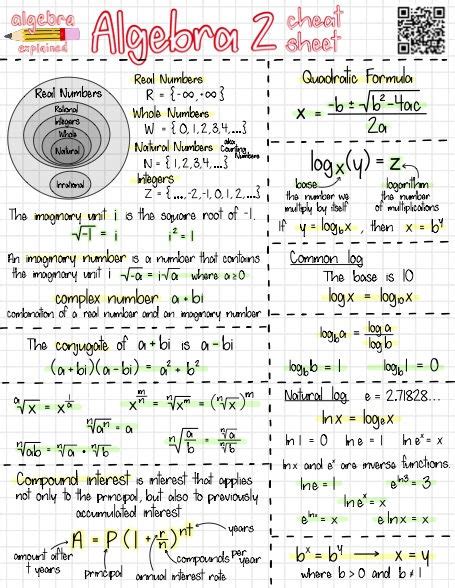 algebra
explained
Algebra 2 cheat sheet
Real Numbers
Rational
Integers
Whole
Natural
Irrational
Real Numbers
R = {-∞, +∞}
Whole Numbers
W = {0, 1, 2, 3, 4, ...}
Natural Numbers aka Counting Numbers
N = {1, 2, 3, 4, ...}
Integers
Z = {..., -2, -1, 0, 1, 2, ...}
The imaginary unit i is the square root of -1.
√-1 = i i² = -1
An imaginary number is a number that contains
the imaginary unit i √-a = i√a where a≥0
complex number a + bi
combination of a real number and an imaginary number
The conjugate of a + bi is a - bi
(a + bi)(a - bi) = a² + b²
ᵃ√x = x^(1/a) x^(m/n) = ⁿ√xᵐ = (ⁿ√x)ᵐ
ⁿ√aⁿ = a
ⁿ√ab = ⁿ√a · ⁿ√b ⁿ√(a/b) = ⁿ√a / ⁿ√b
Compound interest is interest that applies
not only to the principal, but also to previously
accumulated interest
A = P(1 + r/n)^nt
years
compounds per year
amount after t years
principal
annual interest rate
Quadratic Formula
x = (-b ± √b² - 4ac) / 2a
logₓ(y) = z
base
the number we
multiply by itself
logarithm
the number
of multiplications
If y = log_b x , then x = b^y
Common log
The base is 10
log x = log₁₀x
log_b a = log a / log b
log_b b = 1 log_b 1 = 0
Natural log e = 2.71828...
ln x = logₑx
ln 1 = 0 ln e = 1 ln eˣ = x
ln x and eˣ are inverse functions.
ln e = 1 e^ln3 = 3
ln eˣ = x
e^lnx = x e ln x = x
bˣ = b^y → x = y
where b > 0 and b ≠ 1